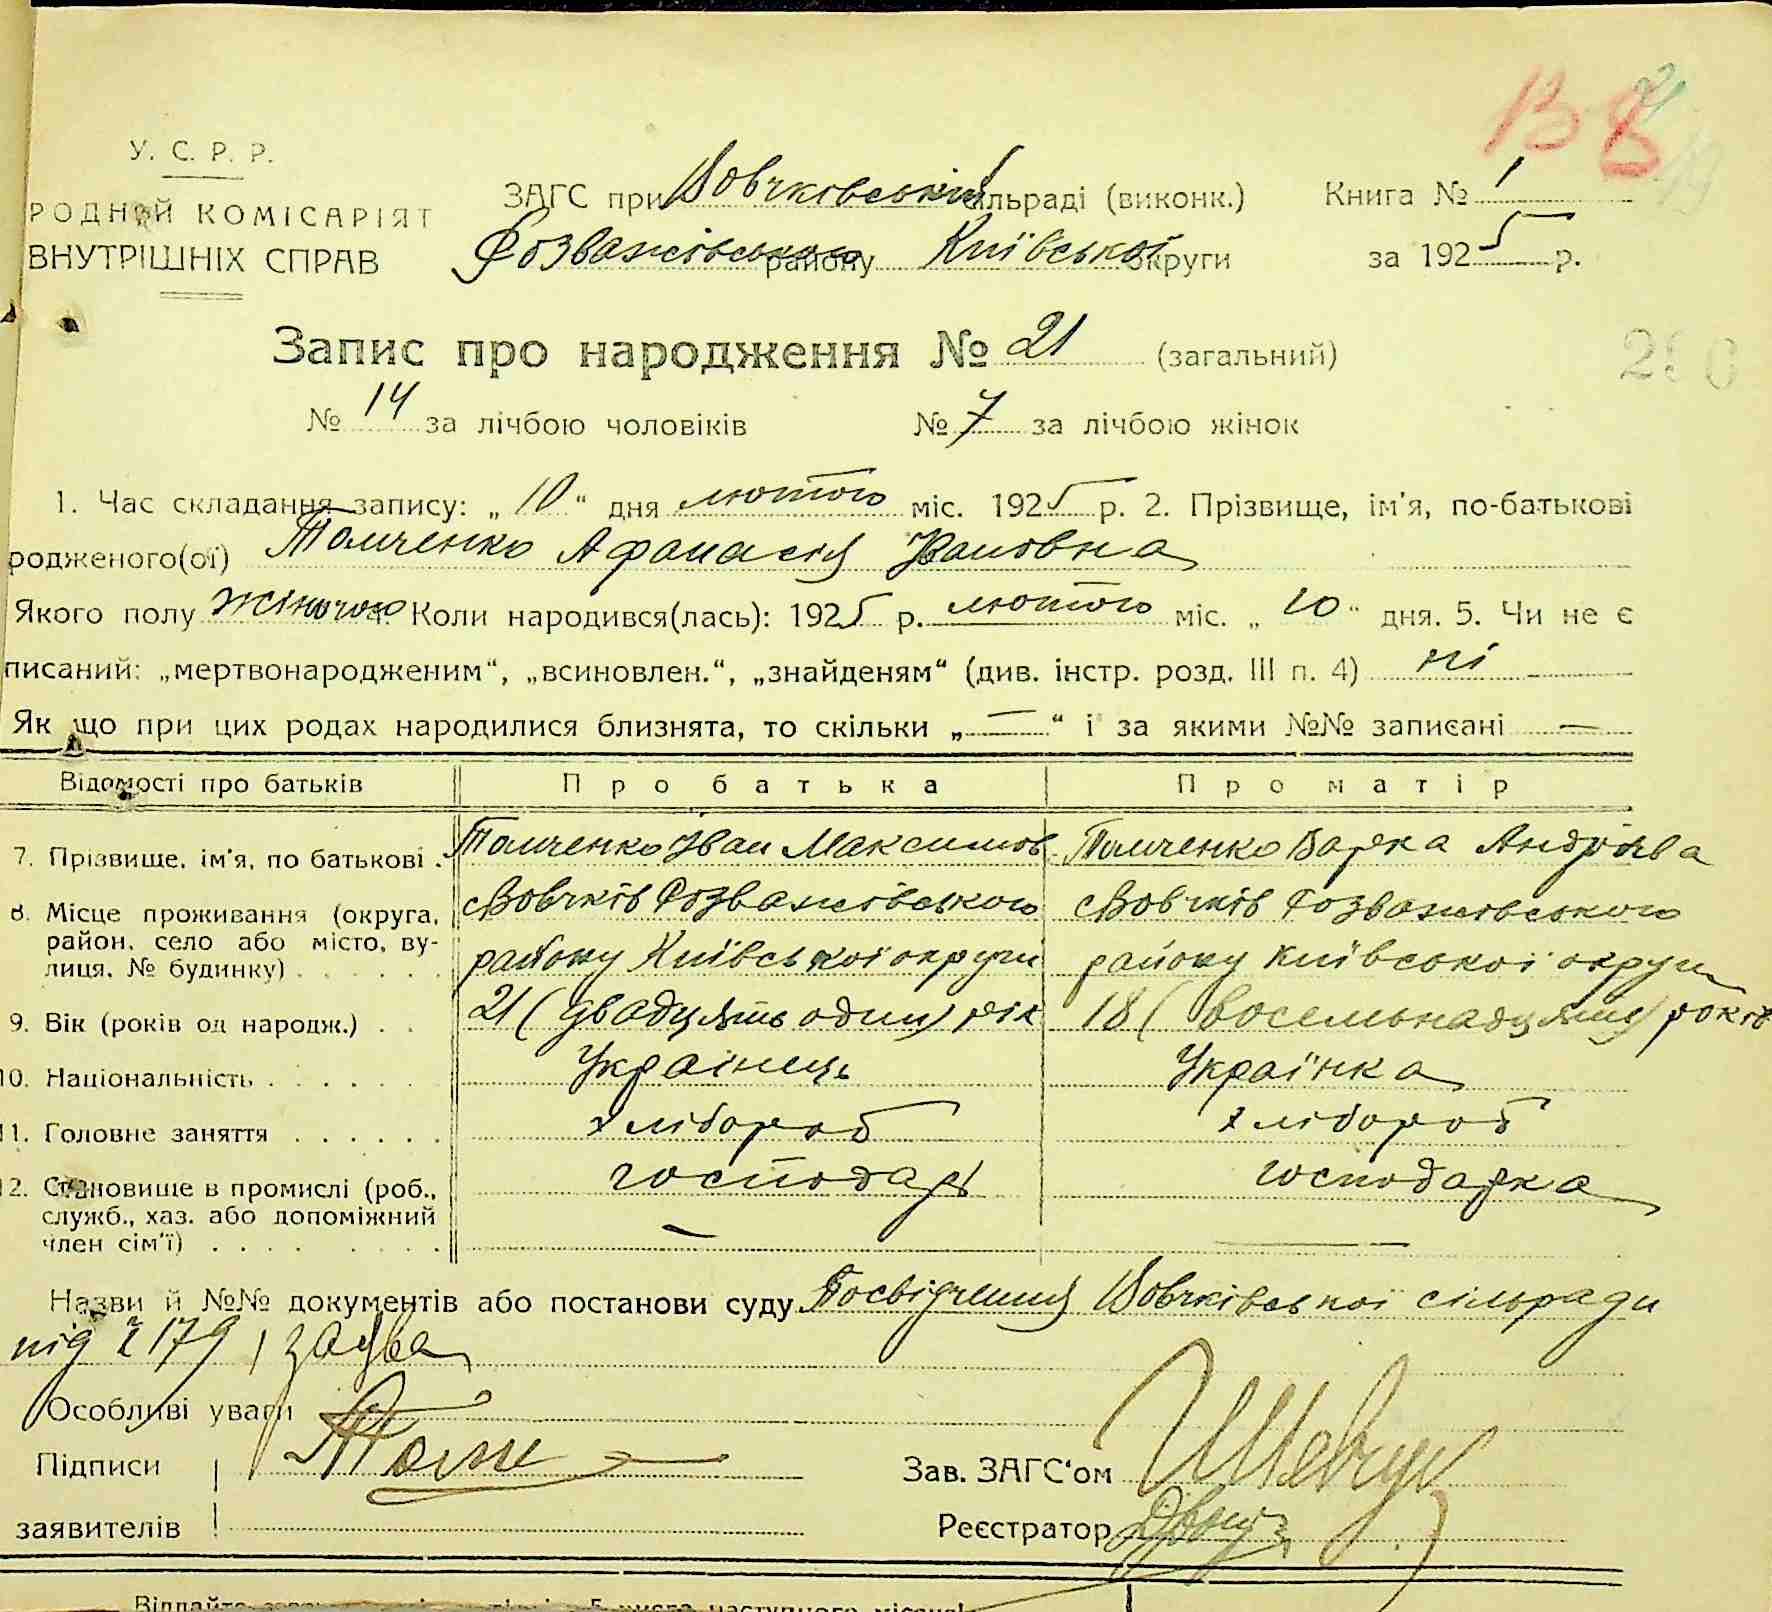 У. С. Р. Р.
РОДНИЙ КОМІСАРІЯТ
ВНУТРІШНІХ СПРАВ
ЗАГС при Вовчківській сільраді (виконк.) Книга № 1
Розважівського району Київської округи за 1925 р.
Запис про народження № 21 (загальний)
№ 14 за лічбою чоловіків № 7 за лічбою жінок
1. Час складання запису: „ 10 “ дня лютого міс. 1925 р. 2. Прізвище, ім'я, по-батькові
родженого(ої) Толченко Афанасія Івановна
Якого полу жіночого 4. Коли народився(лась): 1925 р. лютого міс. „ 10 “ дня. 5. Чи не є
писаний: „мертвонародженим“, „всиновлен.“, „знайденям“ (див. інстр. розд. III п. 4) ні
Як що при цих родах народилися близнята, то скільки „ — “ і за якими №№ записані —
Відомості про батьків Про батька Про матір
7. Прізвище, ім'я, по батькові . Толченко Іван Максимов Толченко Варка Андріева
8. Місце проживання (округа, район, село або місто, вулиця, № будинку) с Вовчків Розважівського району Київської округи с Вовчків Розважівського району Київської округи
9. Вік (років од народж.) . . 21 (двадцять один) рік 18 (восемьнадцять) років
10. Національність . . . . . . Українець Українка
11. Головне заняття . . . . . . хлібороб хлібороб
12. Становище в промислі (роб., служб., хаз. або допоміжний член сім'ї) . . . . господарь господарка
— —
Назви й №№ документів або постанови суду Посвідчення Вовчківської сільради
під № 179, заява
Особливі уваги
Підписи
заявителів
Зав. ЗАГС'ом Шевчук
Реєстратор